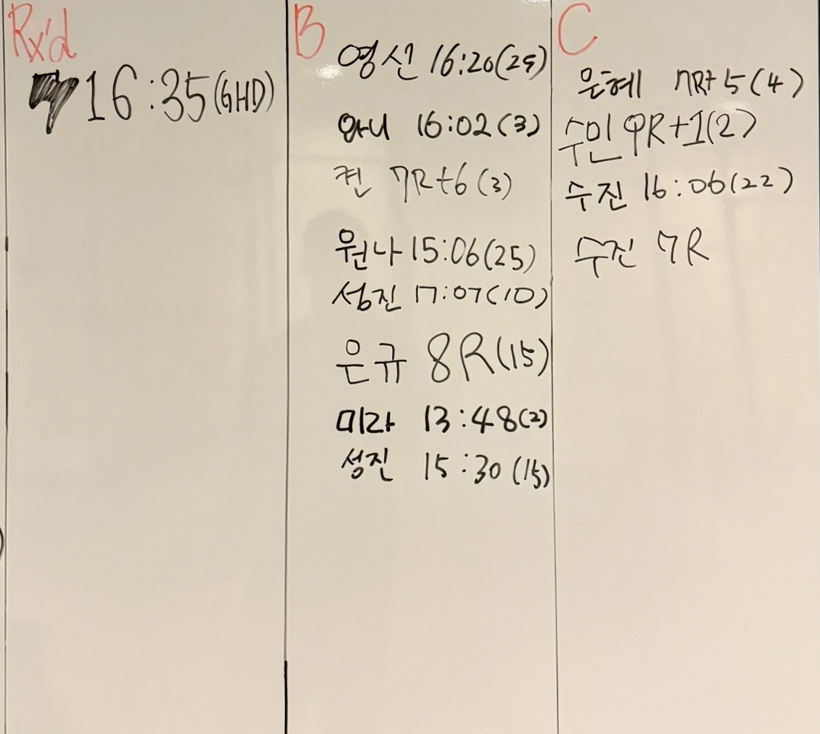 Rx'd
16:35(GHD)
B
영신 16:20(25)
와니 16:02(3)
켠 7R+6(3)
원나 15:06(25)
성진 17:07(10)
은규 8R(15)
미라 13:48(2)
성진 15:30(15)
C
은혜 7R+5(4)
수민 9R+1(2)
수진 16:06(22)
수진 7R